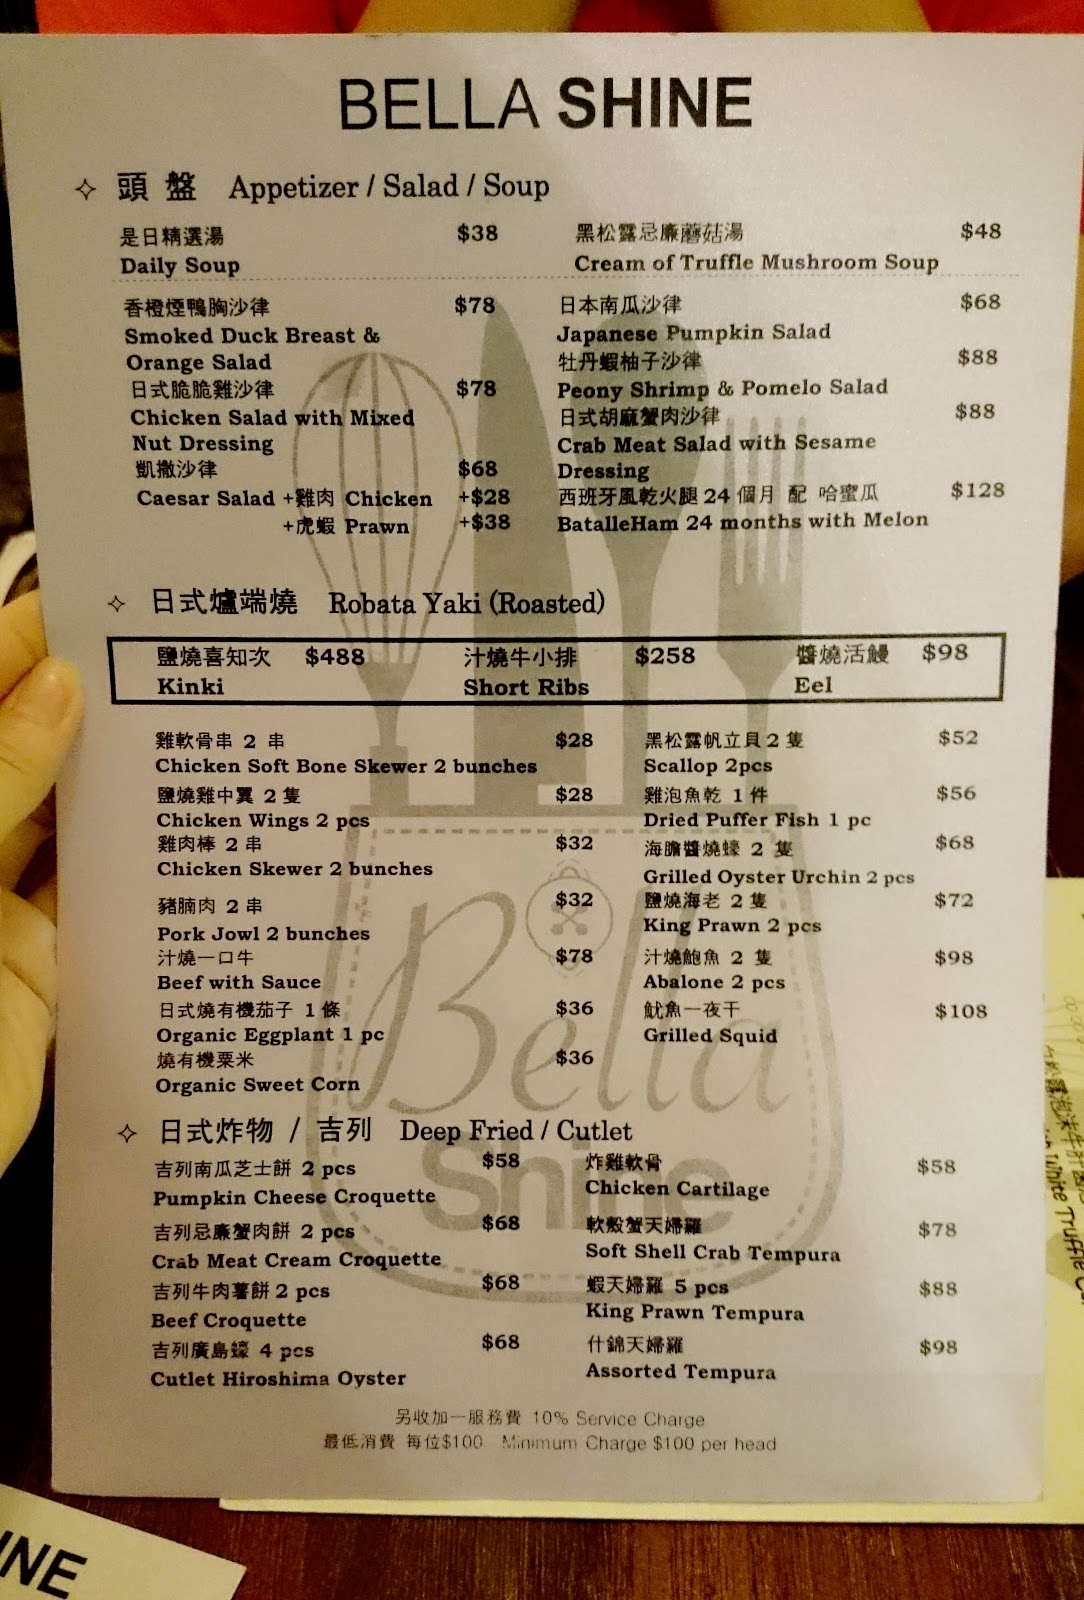 BELLA SHINE
✧ 頭 盤 Appetizer / Salad / Soup
是日精選湯 $38
Daily Soup
黑松露忌廉蘑菇湯 $48
Cream of Truffle Mushroom Soup
香橙煙鴨胸沙律 $78
Smoked Duck Breast &
Orange Salad
日式脆脆雞沙律 $78
Chicken Salad with Mixed
Nut Dressing
凱撒沙律 $68
Caesar Salad +雞肉 Chicken +$28
+虎蝦 Prawn +$38
日本南瓜沙律 $68
Japanese Pumpkin Salad
牡丹蝦柚子沙律 $88
Peony Shrimp & Pomelo Salad
日式胡麻蟹肉沙律 $88
Crab Meat Salad with Sesame
Dressing
西班牙風乾火腿 24 個月 配 哈蜜瓜 $128
BatalleHam 24 months with Melon
✧ 日式爐端燒 Robata Yaki (Roasted)
鹽燒喜知次 $488
Kinki
汁燒牛小排 $258
Short Ribs
醬燒活鰻 $98
Eel
雞軟骨串 2 串 $28
Chicken Soft Bone Skewer 2 bunches
鹽燒雞中翼 2 隻 $28
Chicken Wings 2 pcs
雞肉棒 2 串 $32
Chicken Skewer 2 bunches
豬腩肉 2 串 $32
Pork Jowl 2 bunches
汁燒一口牛 $78
Beef with Sauce
日式燒有機茄子 1 條 $36
Organic Eggplant 1 pc
燒有機粟米 $36
Organic Sweet Corn
黑松露帆立貝 2 隻 $52
Scallop 2pcs
雞泡魚乾 1 件 $56
Dried Puffer Fish 1 pc
海膽醬燒蠔 2 隻 $68
Grilled Oyster Urchin 2 pcs
鹽燒海老 2 隻 $72
King Prawn 2 pcs
汁燒鮑魚 2 隻 $98
Abalone 2 pcs
魷魚一夜干 $108
Grilled Squid
✧ 日式炸物 / 吉列 Deep Fried / Cutlet
吉列南瓜芝士餅 2 pcs $58
Pumpkin Cheese Croquette
吉列忌廉蟹肉餅 2 pcs $68
Crab Meat Cream Croquette
吉列牛肉薯餅 2 pcs $68
Beef Croquette
吉列廣島蠔 4 pcs $68
Cutlet Hiroshima Oyster
炸雞軟骨 $58
Chicken Cartilage
軟殼蟹天婦羅 $78
Soft Shell Crab Tempura
蝦天婦羅 5 pcs $88
King Prawn Tempura
什錦天婦羅 $98
Assorted Tempura
另收加一服務費 10% Service Charge
最低消費 每位$100 Minimum Charge $100 per head
Bella
Shine
White Truffle
INE